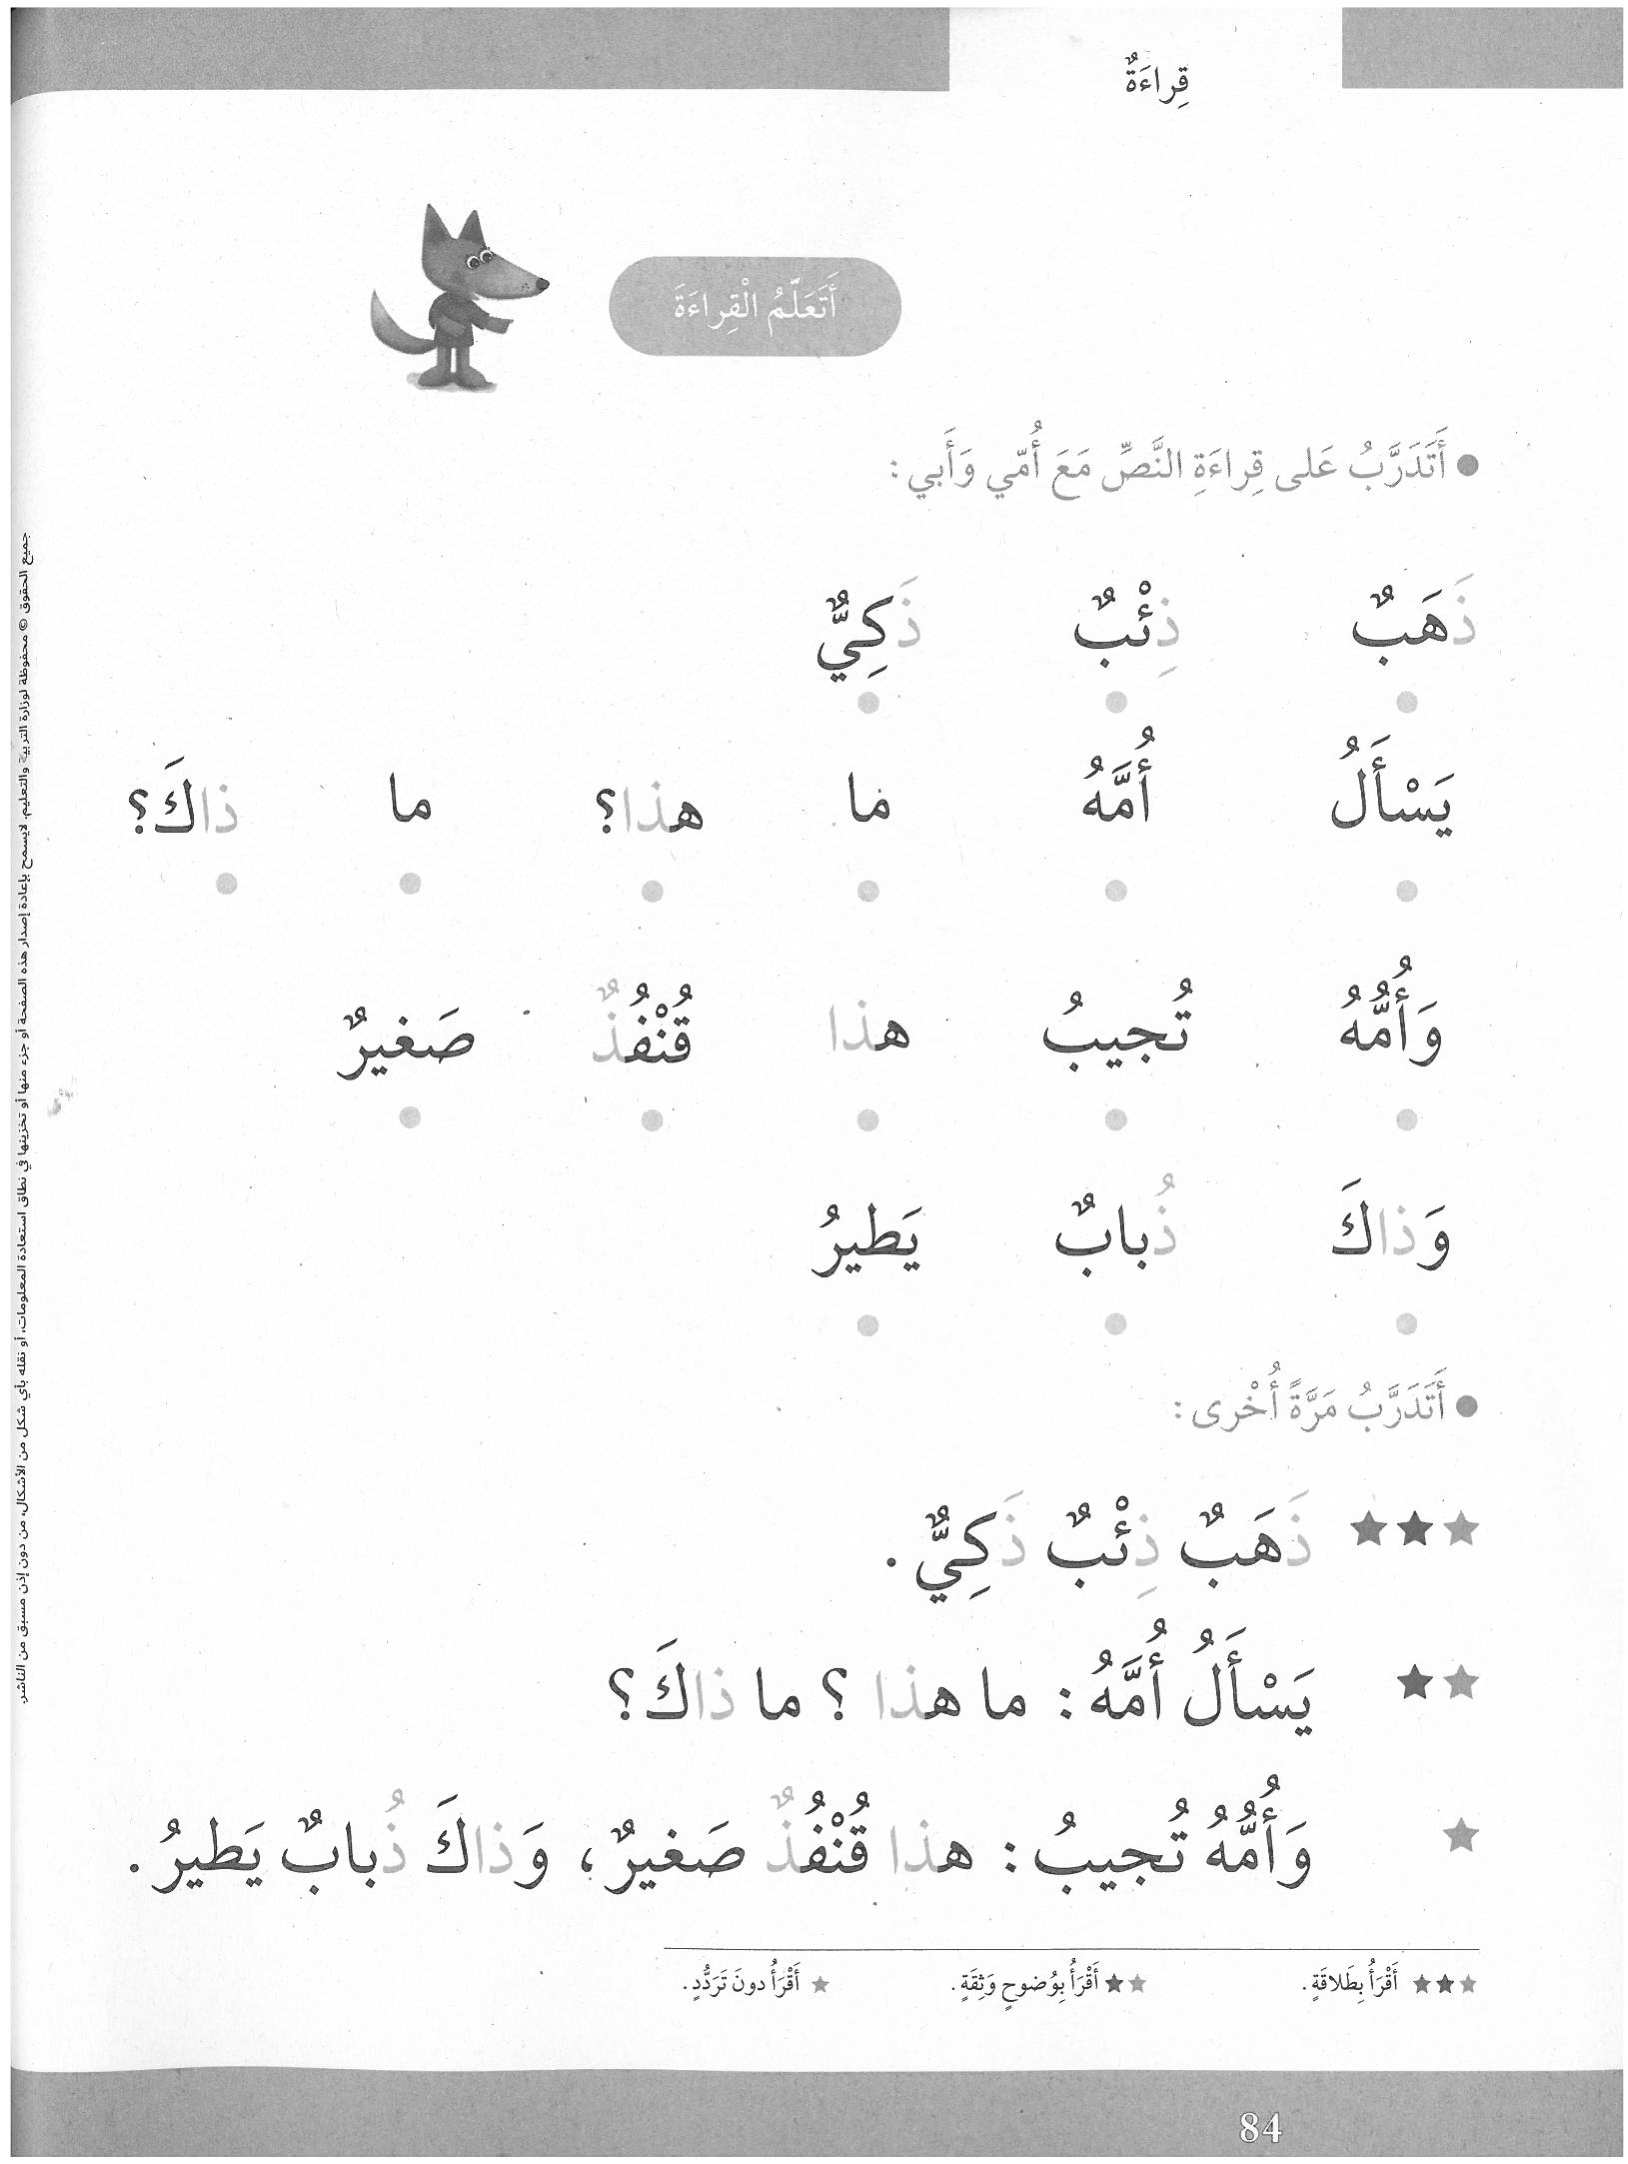 قِراءَةٌ
أَتَعَلَّمُ الْقِراءَةَ
● أَتَدَرَّبُ عَلى قِراءَةِ النَّصِّ مَعَ أُمّي وَأَبي :
ذَهَبٌ ذِئْبٌ ذَكِيٌّ
يَسْأَلُ أُمَّهُ ما هذا؟ ما ذاكَ؟
وَأُمُّهُ تُجيبُ هذا قُنْفُذٌ صَغيرٌ
وَذاكَ ذُبابٌ يَطيرُ
● أَتَدَرَّبُ مَرَّةً أُخْرى :
ذَهَبٌ ذِئْبٌ ذَكِيٌّ .
يَسْأَلُ أُمَّهُ : ما هذا ؟ ما ذاكَ ؟
وَأُمُّهُ تُجيبُ : هذا قُنْفُذٌ صَغيرٌ ، وَذاكَ ذُبابٌ يَطيرُ .
★★★ أَقْرَأُ بِطَلاقَةٍ . ★★ أَقْرَأُ بِوُضوحٍ وَثِقَةٍ . ★ أَقْرَأُ دونَ تَرَدُّدٍ .
84
جميع الحقوق © محفوظة لوزارة التربية والتعليم. لايسمح بإعادة إصدار هذه الصفحة أو جزء منها أو تخزينها في نطاق استعادة المعلومات، أو نقله بأي شكل من الأشكال، من دون إذن مسبق من الناشر.